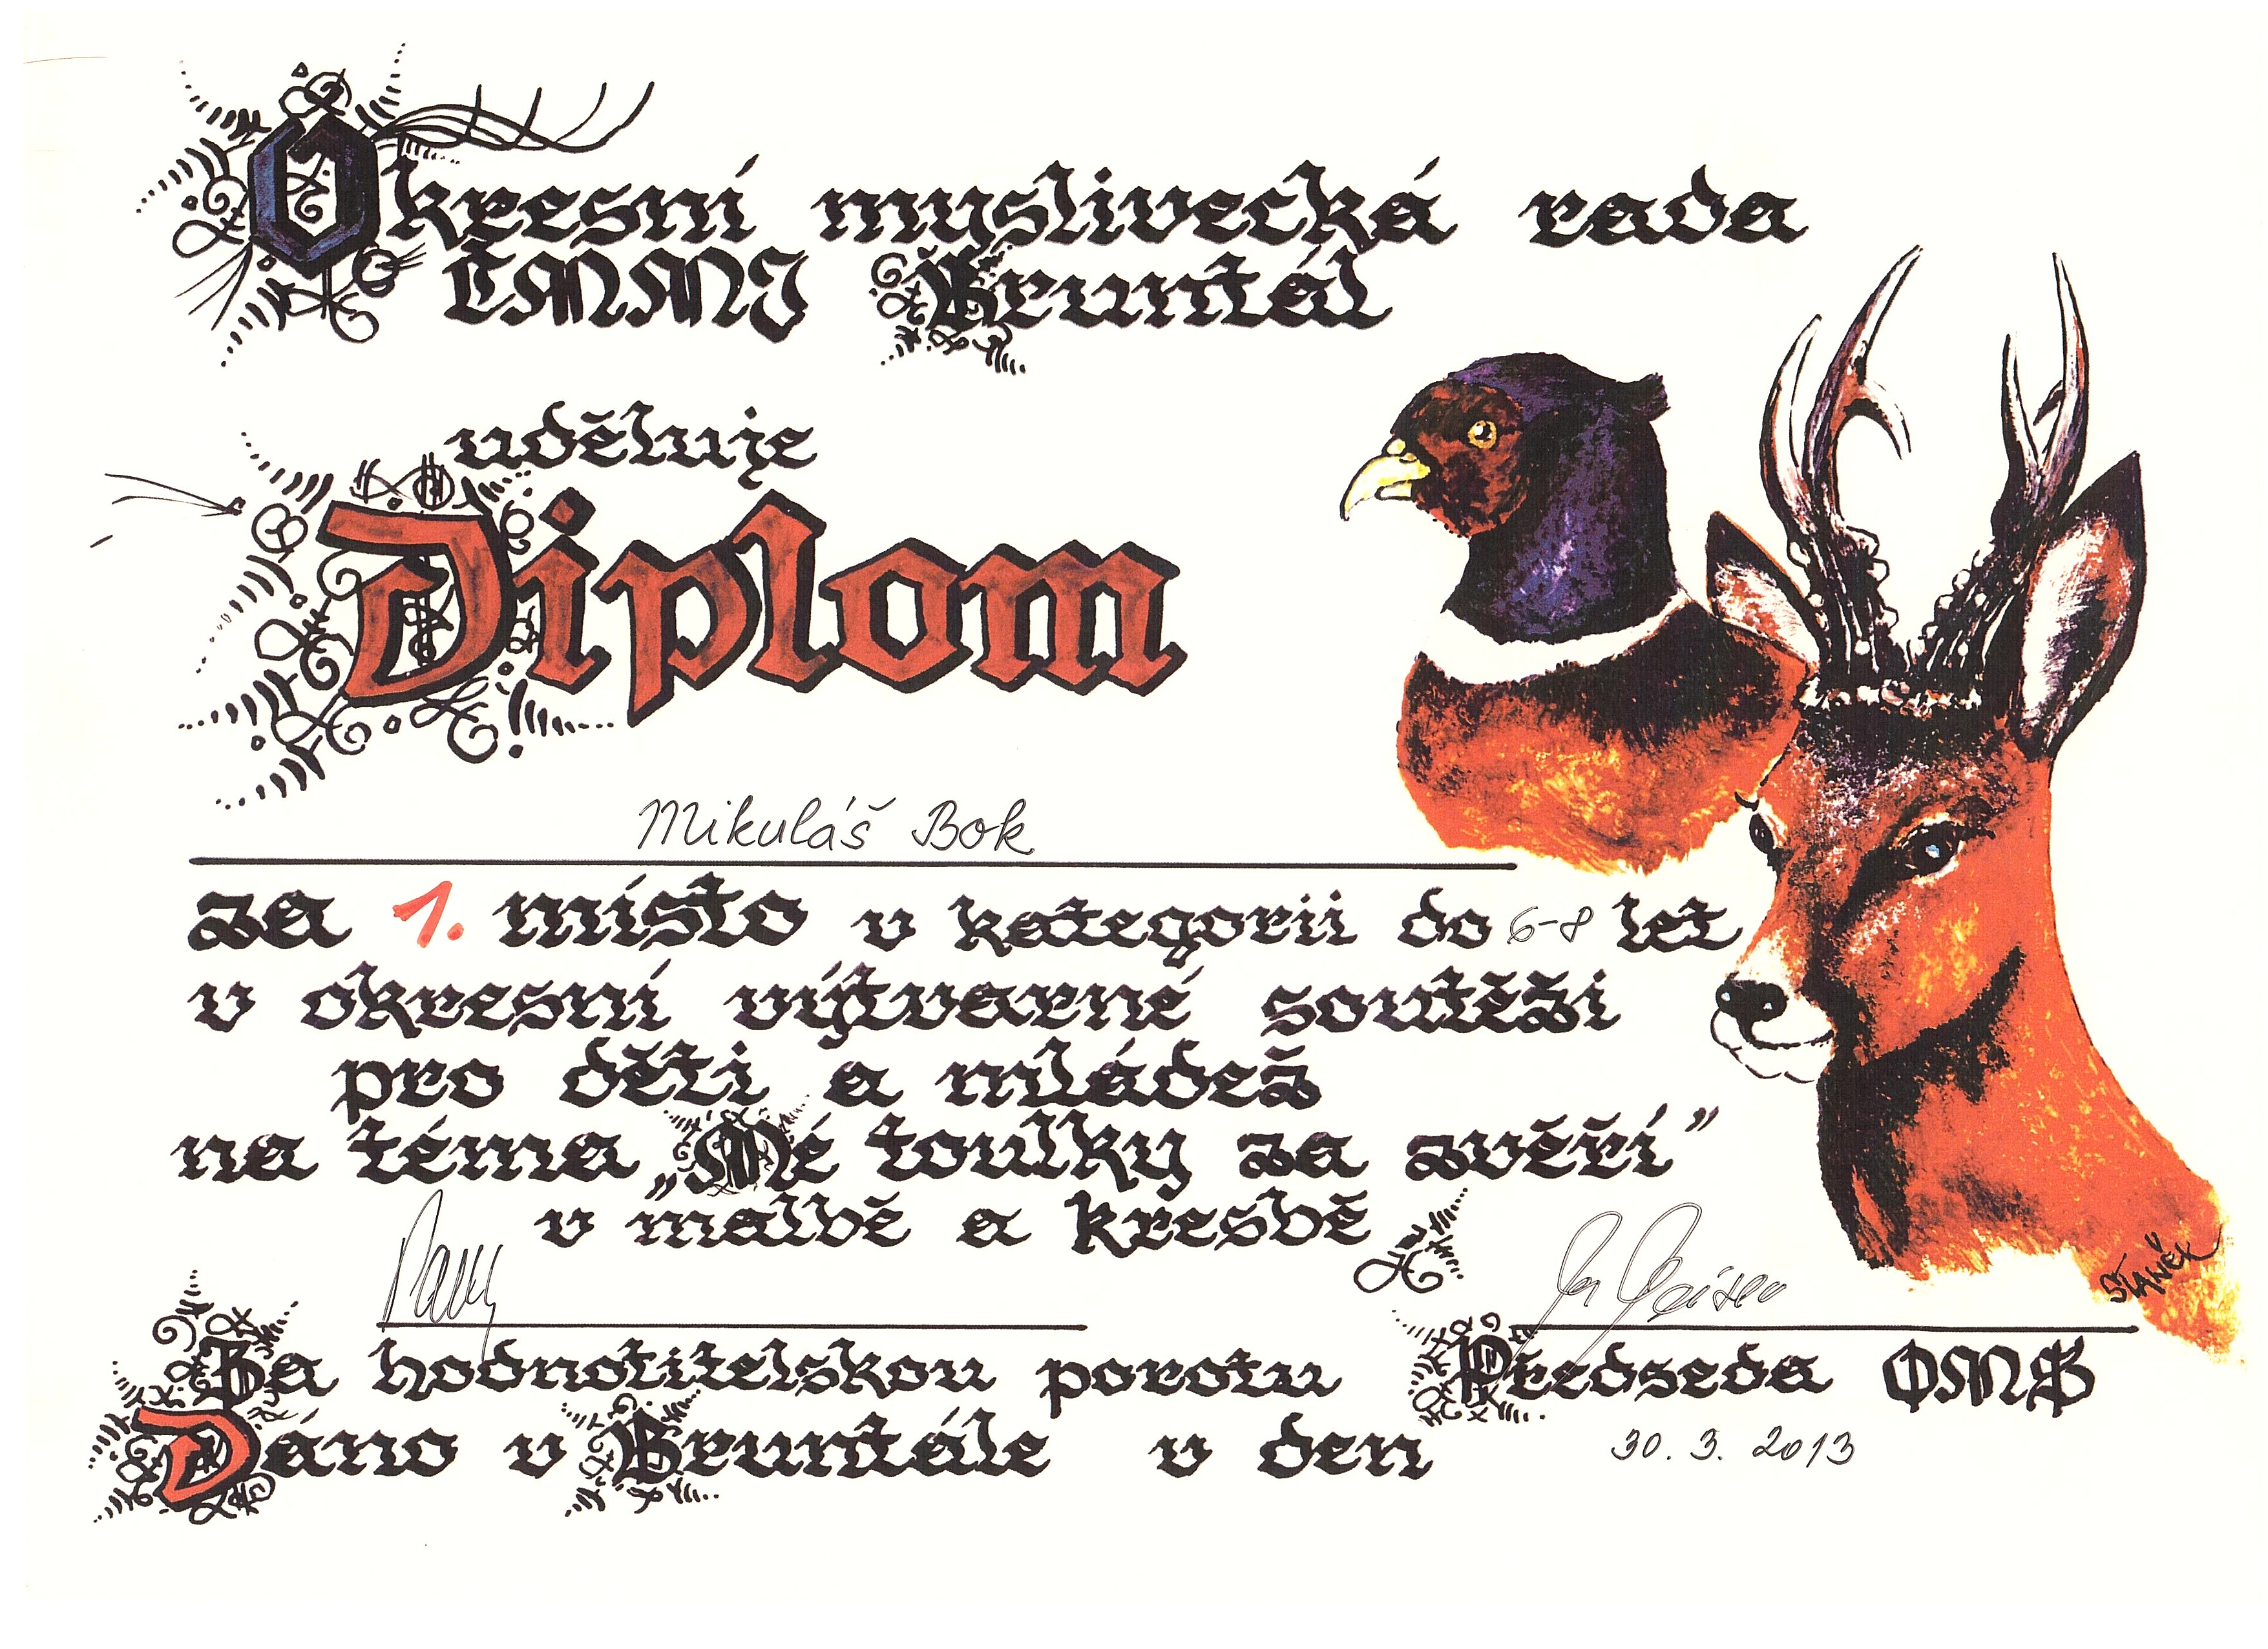 Okresní myslivecká rada
ČMMJ Bruntál
uděluje
Diplom
Mikuláš Bok
za 1. místo v kategorii do 6-8 let
v okresní výtvarné soutěži
pro děti a mládež
na téma „Mé toulky za zvěří”
v malbě a kresbě
STANĚK
Za hodnotitelskou porotu Předseda OMS
Dáno v Bruntále v den 30. 3. 2013